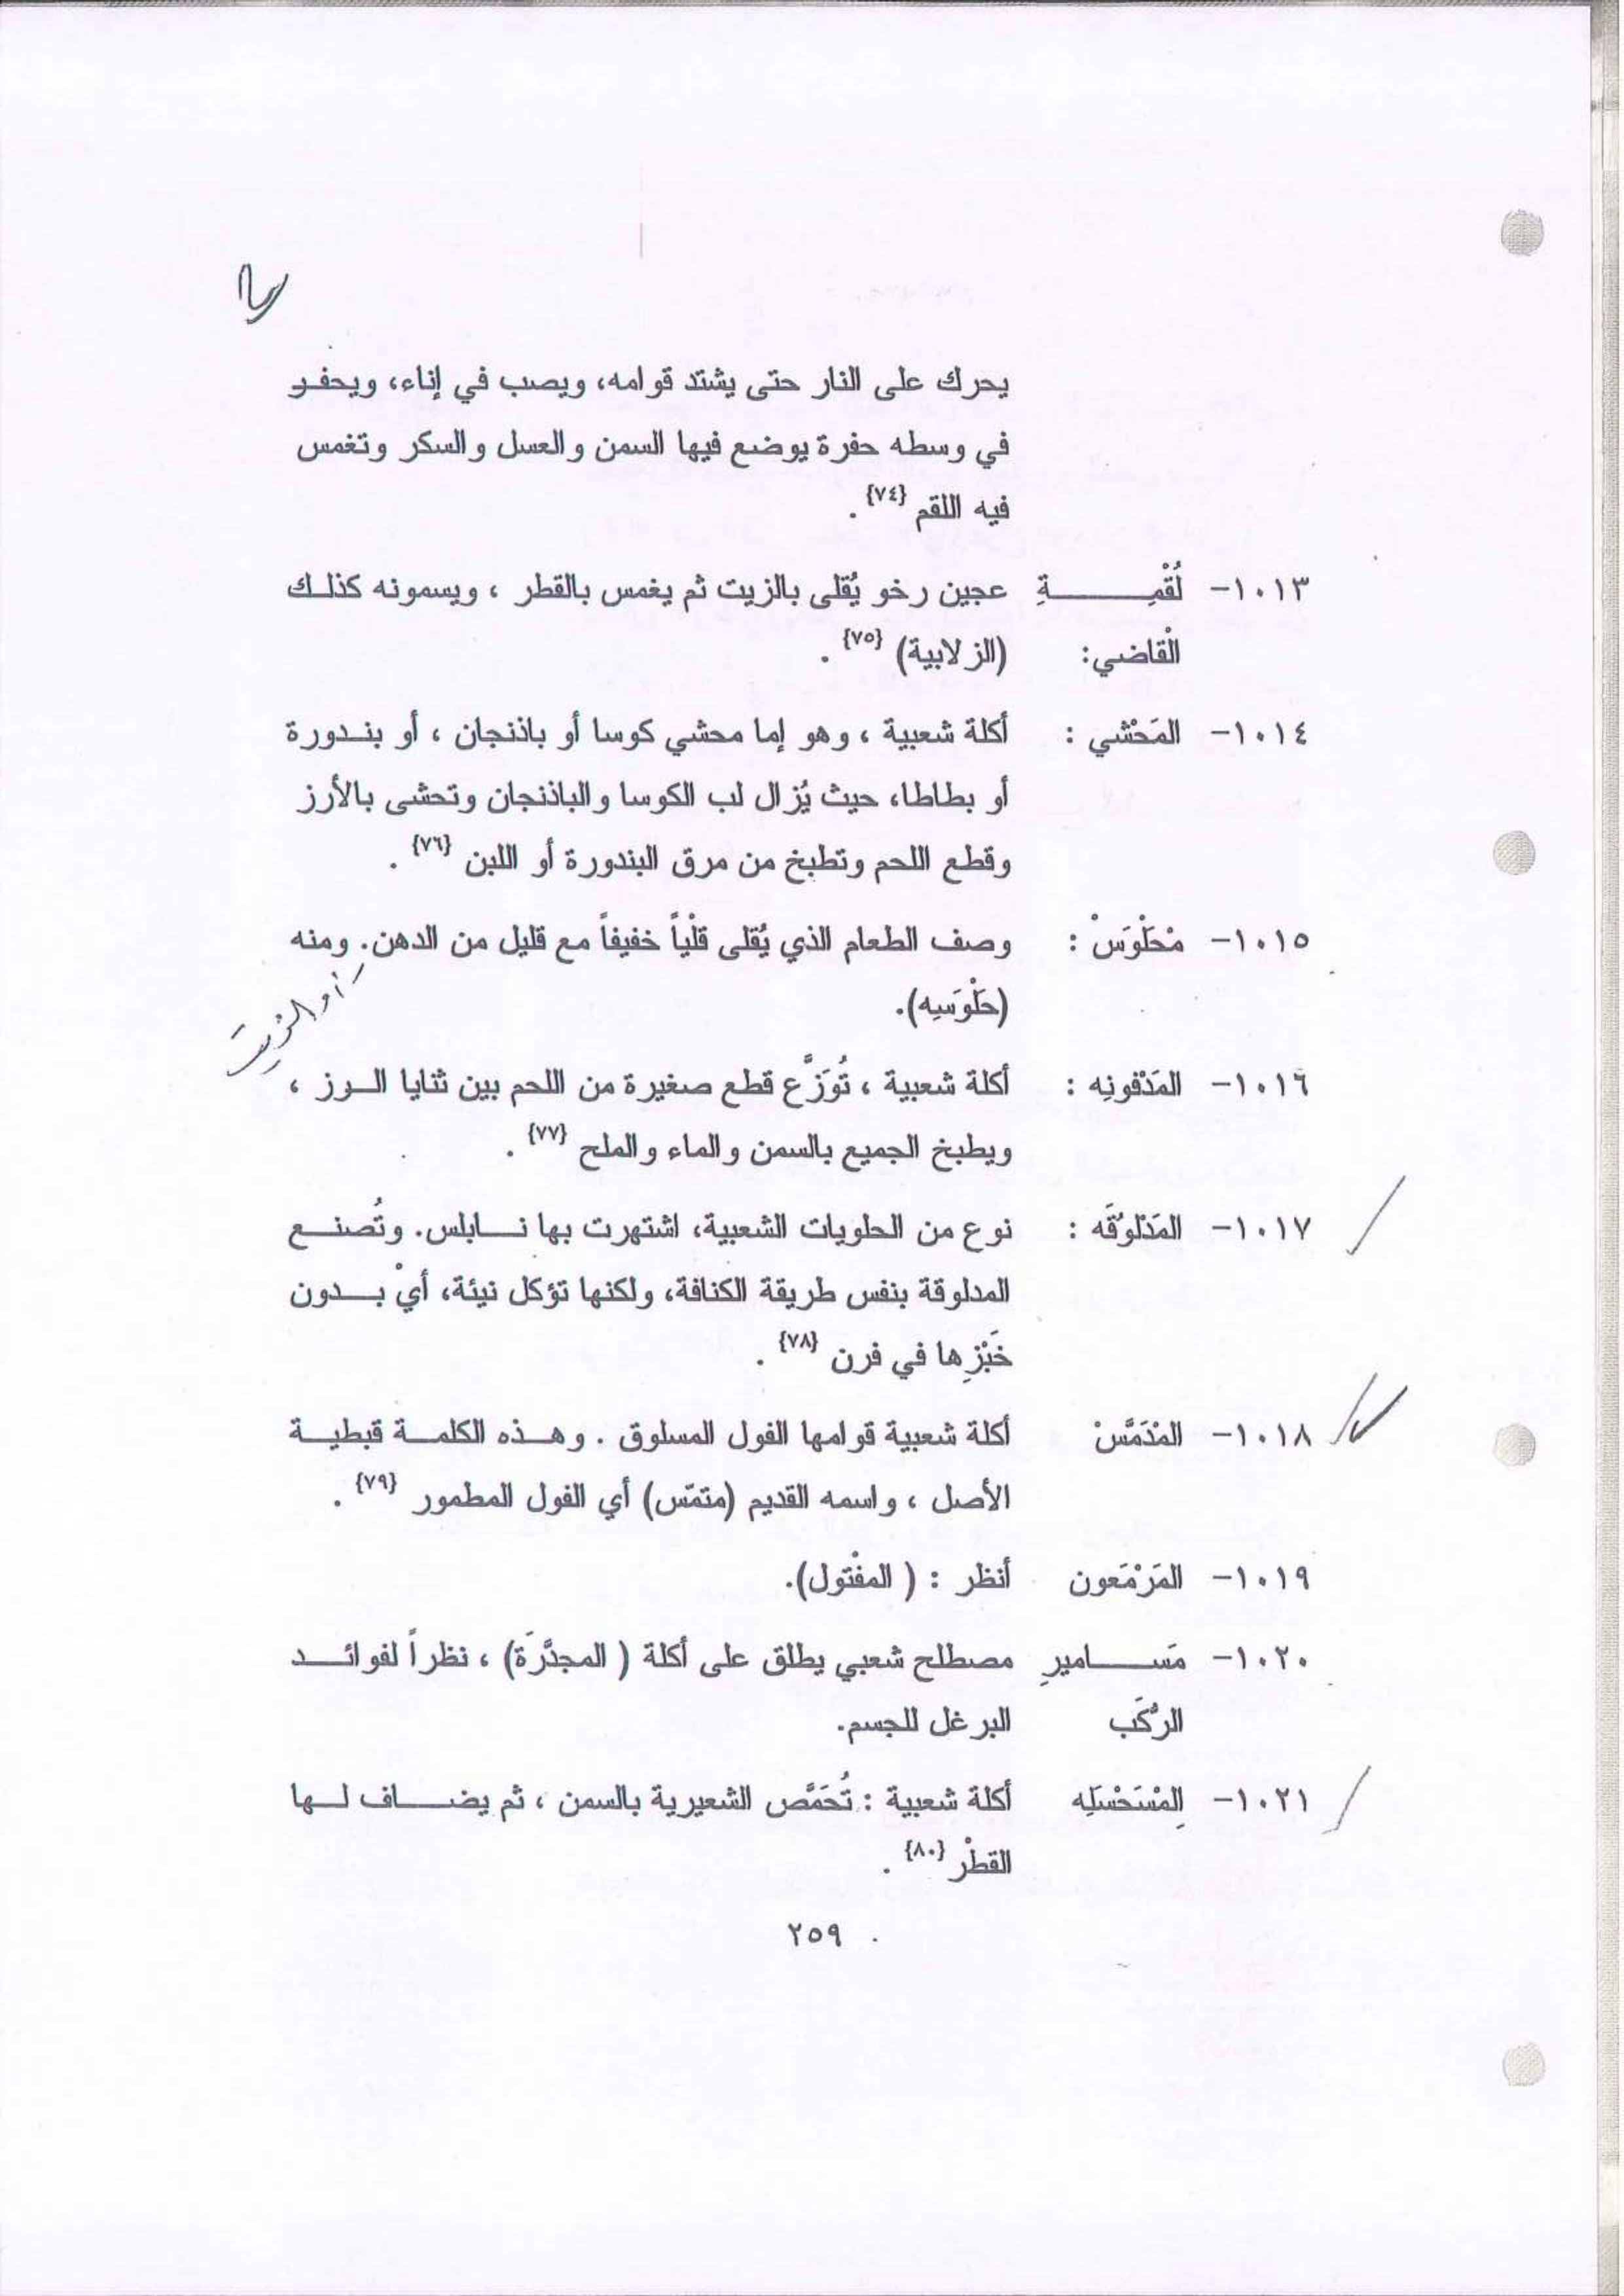 يحرك على النار حتى يشتد قوامه، ويصب في إناء، ويحفر
في وسطه حفرة يوضع فيها السمن والعسل والسكر وتغمس
فيه اللقم {٧٤} .
١٠١٣- لُقْمِةِ عجين رخو يُقلى بالزيت ثم يغمس بالقطر ، ويسمونه كذلك
الْقاضي: (الزلابية) {٧٥} .
١٠١٤- المَحْشي : أكلة شعبية ، وهو إما محشي كوسا أو باذنجان ، أو بندورة
أو بطاطا، حيث يُزال لب الكوسا والباذنجان وتحشى بالأرز
وقطع اللحم وتطبخ من مرق البندورة أو اللبن {٧٦} .
١٠١٥- مْحَلْوَسْ : وصف الطعام الذي يُقلى قلْياً خفيفاً مع قليل من الدهن. ومنه
أو الزيت
(حَلْوَسِه).
١٠١٦- المَدْفونِه : أكلة شعبية ، تُوَزَّع قطع صغيرة من اللحم بين ثنايا الرز ،
ويطبخ الجميع بالسمن والماء والملح {٧٧} .
١٠١٧- المَدْلوُقَه : نوع من الحلويات الشعبية، اشتهرت بها نابلس. وتُصنع
المدلوقة بنفس طريقة الكنافة، ولكنها تؤكل نيئة، أيْ بدون
خَبْزِها في فرن {٧٨} .
١٠١٨- المْدَمَّسْ أكلة شعبية قوامها الفول المسلوق . وهذه الكلمة قبطية
الأصل ، واسمه القديم (متمّس) أي الفول المطمور {٧٩} .
١٠١٩- المَرْمَعون أنظر : ( المفْتول).
١٠٢٠- مَسامير مصطلح شعبي يطلق على أكلة ( المجدَّرَة) ، نظراً لفوائد
الرُّكَب البرغل للجسم.
١٠٢١- المِْسَحْسَلِه أكلة شعبية : تُحَمَّص الشعيرية بالسمن ، ثم يضاف لها
القطْر {٨٠} .
٢٥٩